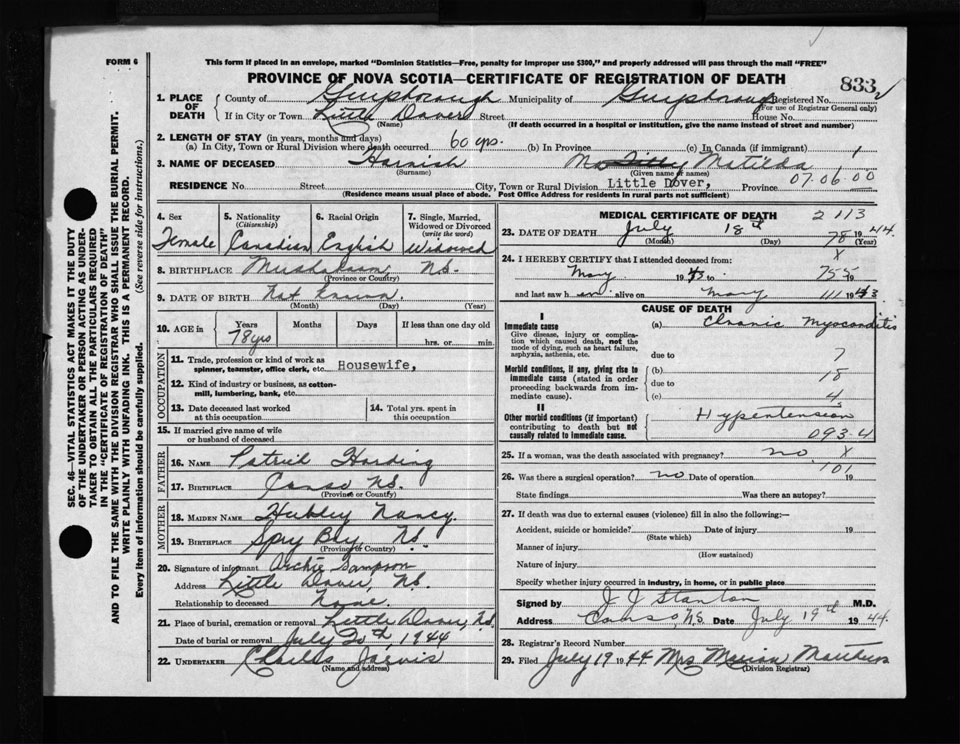 FORM 6
This form if placed in an envelope, marked "Dominion Statistics—Free, penalty for improper use $300," and properly addressed will pass through the mail "FREE"
PROVINCE OF NOVA SCOTIA—CERTIFICATE OF REGISTRATION OF DEATH
833
1. PLACE OF DEATH County of Guysborough Municipality of Guysborough Registered No.
(For use of Registrar General only)
If in City or Town Little Dover Street House No.
(Name) (If death occurred in a hospital or institution, give the name instead of street and number)
2. LENGTH OF STAY (in years, months and days)
(a) In City, Town or Rural Division where death occurred 60 yrs. (b) In Province (c) In Canada (if immigrant) 1
3. NAME OF DECEASED Harnish Matilda
(Surname) (Given name or names)
RESIDENCE No. Street City, Town or Rural Division Little Dover, Province 07.06.00
(Residence means usual place of abode. Post Office Address for residents in rural parts not sufficient)
SEC. 46—VITAL STATISTICS ACT MAKES IT THE DUTY
OF THE UNDERTAKER OR PERSON ACTING AS UNDER-
TAKER TO OBTAIN ALL THE PARTICULARS REQUIRED
IN THE "CERTIFICATE OF REGISTRATION OF DEATH"
AND TO FILE THE SAME WITH THE DIVISION REGISTRAR WHO SHALL ISSUE THE BURIAL PERMIT.
WRITE PLAINLY WITH UNFADING INK. THIS IS A PERMANENT RECORD.
Every item of information should be carefully supplied. (See reverse side for instructions.)
4. Sex 5. Nationality (Citizenship) 6. Racial Origin 7. Single, Married, Widowed or Divorced (write the word)
Female Canadian English Widowed
8. BIRTHPLACE N.S.
(Province or Country)
9. DATE OF BIRTH Not known.
(Month) (Day) (Year)
10. AGE in Years Months Days If less than one day old
78 yrs hrs. or min.
OCCUPATION
11. Trade, profession or kind of work as
spinner, teamster, office clerk, etc. Housewife,
12. Kind of industry or business, as cotton-
mill, lumbering, bank, etc.
13. Date deceased last worked at this occupation
14. Total yrs. spent in this occupation
15. If married give name of wife
or husband of deceased
FATHER
16. NAME Patrick Harding
17. BIRTHPLACE Canso N.S.
(Province or Country)
MOTHER
18. MAIDEN NAME Hubley Nancy.
19. BIRTHPLACE Spry Bay, N.S.
(Province or Country)
20. Signature of informant Archie Sampson
Address Little Dover, N.S.
Relationship to deceased None.
21. Place of burial, cremation or removal Little Dover, N.S.
Date of burial or removal July 20th, 1944
22. UNDERTAKER Charles Jarvis
(Name and address)
MEDICAL CERTIFICATE OF DEATH 2 113
23. DATE OF DEATH July 18th 1944
(Month) (Day) 78 (Year)
24. I HEREBY CERTIFY that I attended deceased from: X
May 1943 to 755 19
and last saw her alive on May 111 1943
CAUSE OF DEATH
I
Immediate cause
Give disease, injury or complica-
tion which caused death, not the
mode of dying, such as heart failure,
asphyxia, asthenia, etc.
(a) Chronic Myocarditis
due to 7
Morbid conditions, if any, giving rise to
immediate cause (stated in order
proceeding backwards from im-
mediate cause).
(b) 18
due to
(c) 4
II
Other morbid conditions (if important)
contributing to death but not
causally related to immediate cause.
Hypertension
093-4
25. If a woman, was the death associated with pregnancy? no X
101
26. Was there a surgical operation? no Date of operation 19
State findings Was there an autopsy?
27. If death was due to external causes (violence) fill in also the following:—
Accident, suicide or homicide? Date of injury 19
(State which)
Manner of injury
(How sustained)
Nature of injury
Specify whether injury occurred in industry, in home, or in public place
Signed by J J Stanton M.D.
Address Canso, N.S. Date July 19th 1944
28. Registrar's Record Number
29. Filed July 19 1944 Mrs Matthews
(Division Registrar)